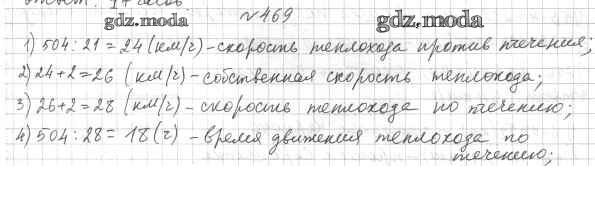 №469
gdz.moda gdz.moda
1) 504 : 21 = 24 (км/ч) - скорость теплохода против течения;
2) 24 + 2 = 26 (км/ч) - собственная скорость теплохода;
3) 26 + 2 = 28 (км/ч) - скорость теплохода по течению;
4) 504 : 28 = 18 (ч) - время движения теплохода по
течению;